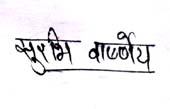 सुरभि वार्ष्णेय